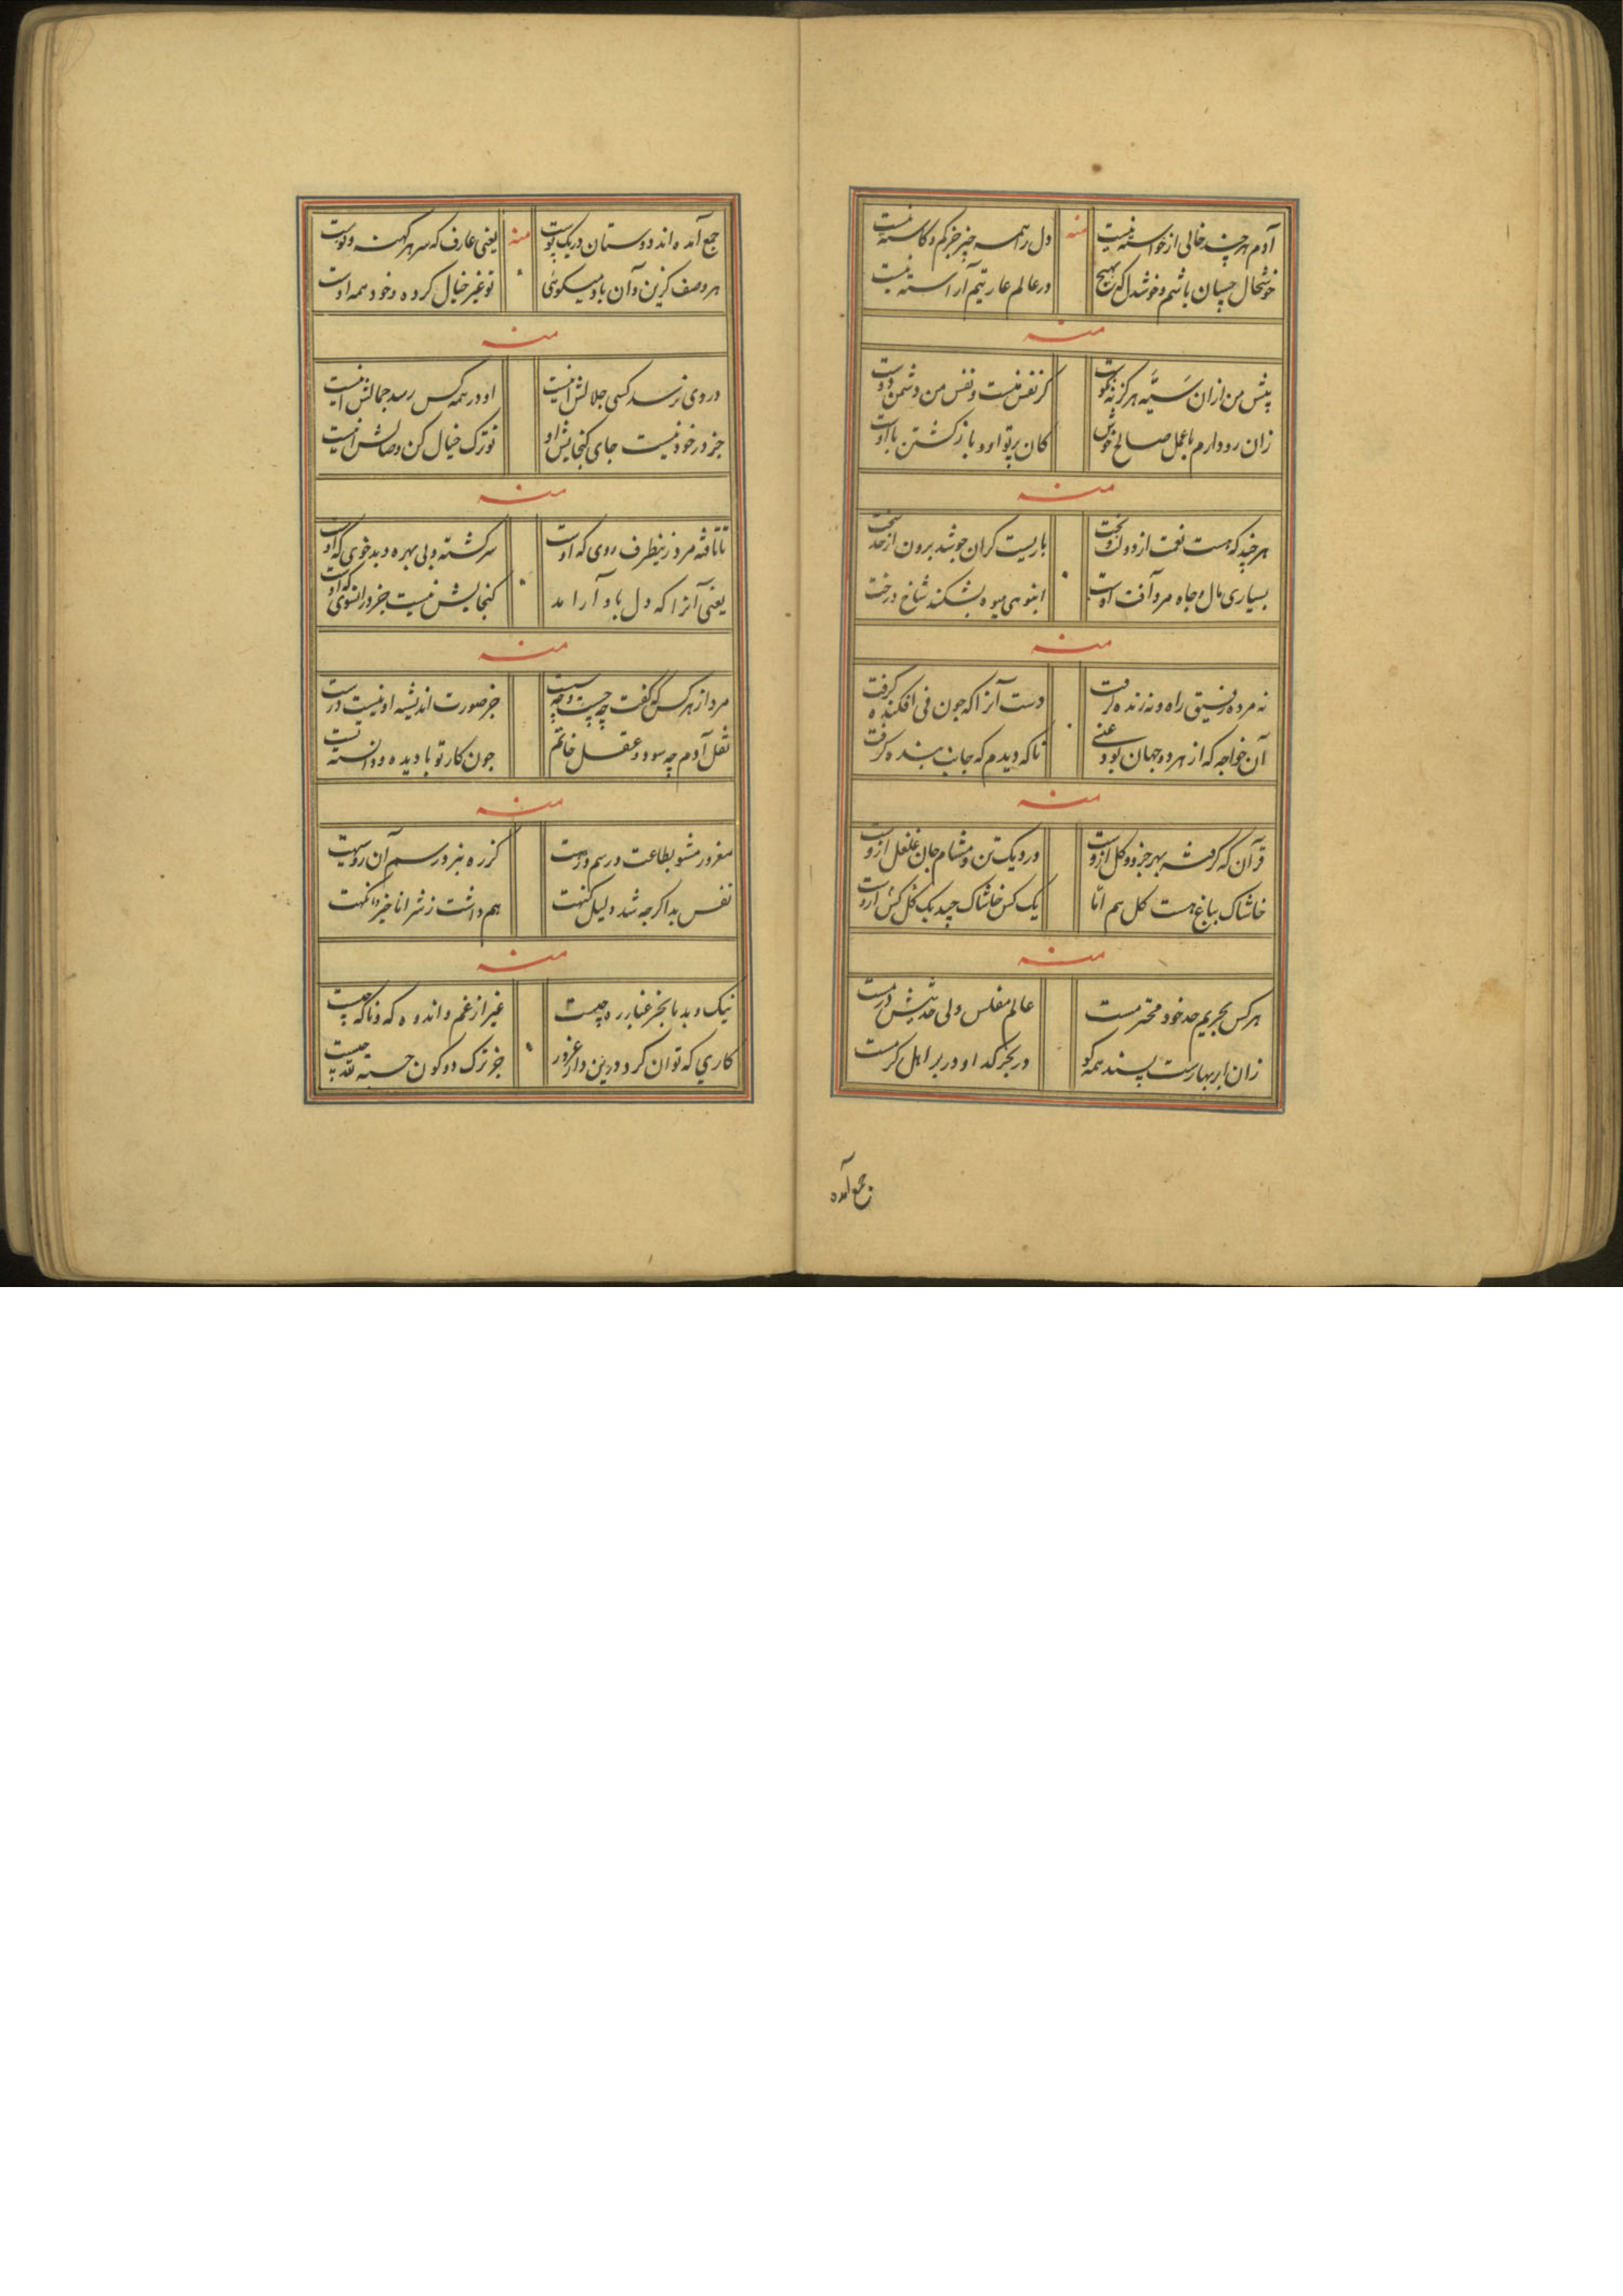 آدم هر چند خالی از خواسته نیست
منه
دل را همه چیز جز کم و کاسته نیست
خوشحال چسان باشم و خوشدل که بهیچ
در عالم عاریتیم آراسته نیست
منه
پیش من ازان سَیِّه هرگز نه نکوست
کز نفس منست و نفس من دشمن دوست
زان رو دارم با عمل صالح خوش
کان پرتو او و بازگشتن با اوست
منه
هر چند که هست نعمت از دولت و بخت
باریست گران چو شد برون از حد سخت
بسیاری مال و جاه مرد آفت اوست
انبوهی میوه بشکند شاخ درخت
منه
نه مرده رفیق راه و نه زنده گرفت
دست آنرا که چون فی افکنده گرفت
آن خواجه که از هر دو جهان بود غنی
ناگه دیدم که جانب بنده گرفت
منه
قرآن که گرفته بهر جزو و کل ازوست
در دیک تن و مشام جان غلغل ازوست
خاشاک بباغ هست گل هم امّا
یک کس خاشاک چید یک گل کش ازوست
منه
هر کس بحریم حد خود محترمست
عالم مفلس ولی حدیثش درمست
زان ابر بهارست پسند همه کو
در بحر گدا و در بر اهل کرمست
جمع آمده
جمع آمده‌اند دوستان در یک پوست
منه
یعنی عارف که سر هر کهنه و نوست
هر وصف کزین و آن باو میگوئی
تو غیر خیال کرده و خود همه اوست
منه
در وی نرسد کسی جلالش اینست
او در همه کس رسد جمالش اینست
جز در خود نیست جای گنجایش او
تو ترک خیال کن وصالش اینست
منه
تا تافته مرد زینطرف روی که اوست
سرگشته و بی بهره و بدخوی که اوست
یعنی آنرا که دل باو آرامد
گنجایش نیست جز در انسوی که اوست
منه
مرد از هر کس که گفت چه چیست و چه چیست
جز صورت اندیشه او نیست درست
نقل آدم چه سود و عقل خاتم
چون کار تو با دیده و دانسته تست
منه
مغرور مشو بطاعت و رسم درست
نفس بد اگرچه شد دلیل کنهت
منه
نیک و بد ما بجز غبار ره چیست
غیر از غم و اندوه که و ناگه چیست
کاری که توان کرد درین دار غرور
جز ترک دو کون حسبة للّه چیست